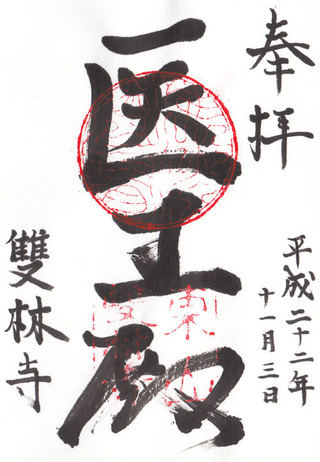 奉拝
平成二十二年
十一月三日
医王殿
雙林寺